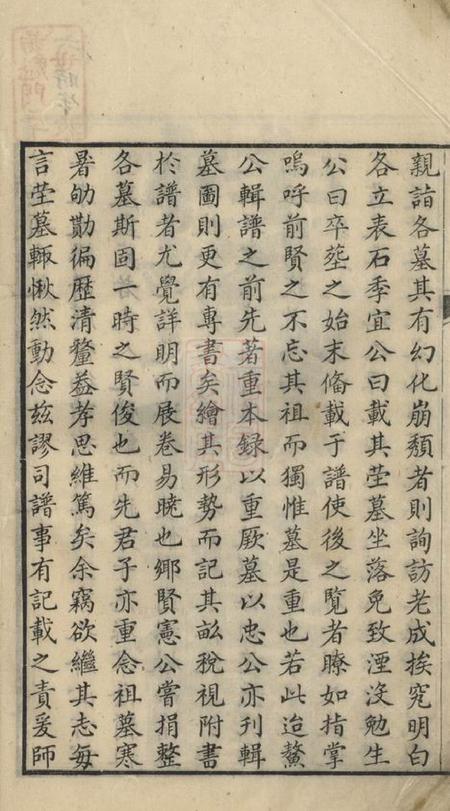 親詣各墓其有幻化崩頽者則詢訪老成挨究明白
各立表石季宜公曰載其塋墓坐落免致湮没勉生
公曰卒塟之始末脩載于譜使後之覽者瞭如指掌
嗚呼前賢之不忘其祖而獨惟墓是重也若此迨鰲
公輯譜之前先著重本録以重厥墓以忠公亦刊輯
墓圖則更有專書矣繪其形勢而記其畝稅視附書
於譜者尤覺詳明而展卷易曉也鄉賢憲公嘗捐整
各墓斯固一時之賢俊也而先君子亦重念祖墓寒
暑劬勩徧歷清釐益孝思維篤矣余竊欲繼其志每
言塋墓輙愀然動念玆謬司譜事有記載之責爰師